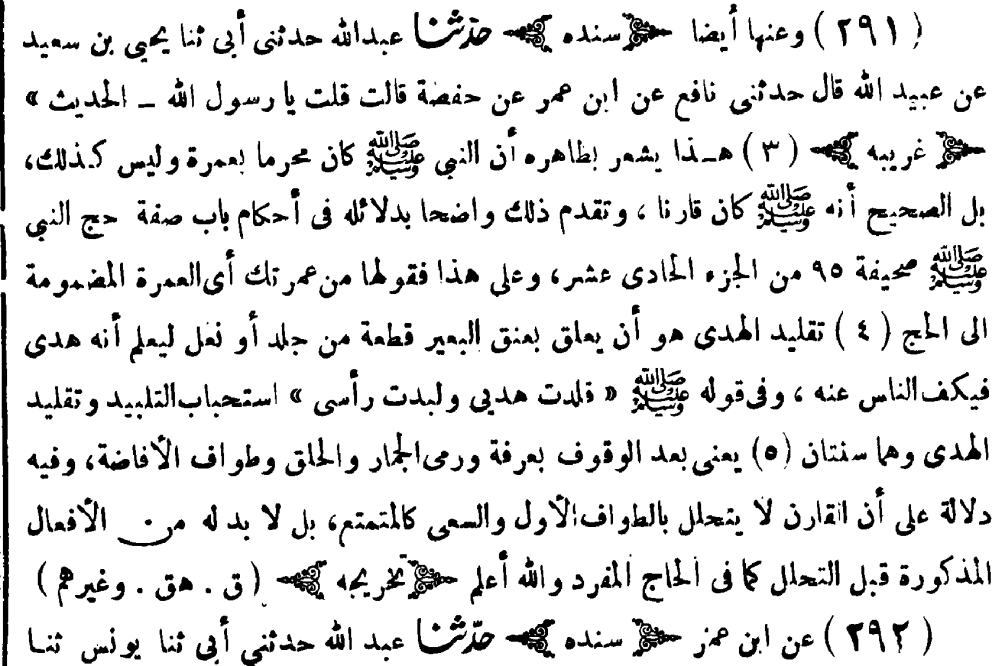 ( ٢٩١ ) وعنها أيضا ﴿ سنده ﴾ حدّثنا عبدالله حدثنى أبى ثنا يحيى بن سعيد
عن عبيد الله قال حدثنى نافع عن ابن عمر عن حفصة قالت قلت يا رسول الله ــ الحديث »
﴿ غريبه ﴾ ( ٣ ) هـذا يشعر بظاهره أن النبى ﷺ كان محرما بعمرة وليس كـذلك،
بل الصحيح أنه ﷺ كان قارنا ، وتقدم ذلك واضحا بدلائله فى أحكام باب صفة حج النبي
ﷺ صحيفة ٩٥ من الجزء الحادى عشر، وعلى هذا فقولها من عمرتك أى العمرة المضمومة
الى الحج ( ٤ ) تقليد الهدى هو أن يعلق بعنق البعير قطعة من جلد أو نعل ليعلم أنه هدى
فيكف الناس عنه ، وفى قوله ﷺ « قلدت هديى ولبدت رأسى » استحباب التلبيد وتقليد
الهدى وهما سنتان (٥) يعنى بعد الوقوف بعرفة ورمى الجمار والحلق وطواف الأفاضة، وفيه
دلالة على أن القارن لا يتحلل بالطواف الأول والسعى كالمتمتع، بل لا بد له من الأفعال
المذكورة قبل التحلل كما فى الحاج المفرد والله أعلم ﴿ تخريجه ﴾ ( ق . هق . وغيرهم )
( ٢٩٢ ) عن ابن عمر ﴿ سنده ﴾ حدّثنا عبد الله حدثني أبى ثنا يونس ثنـا